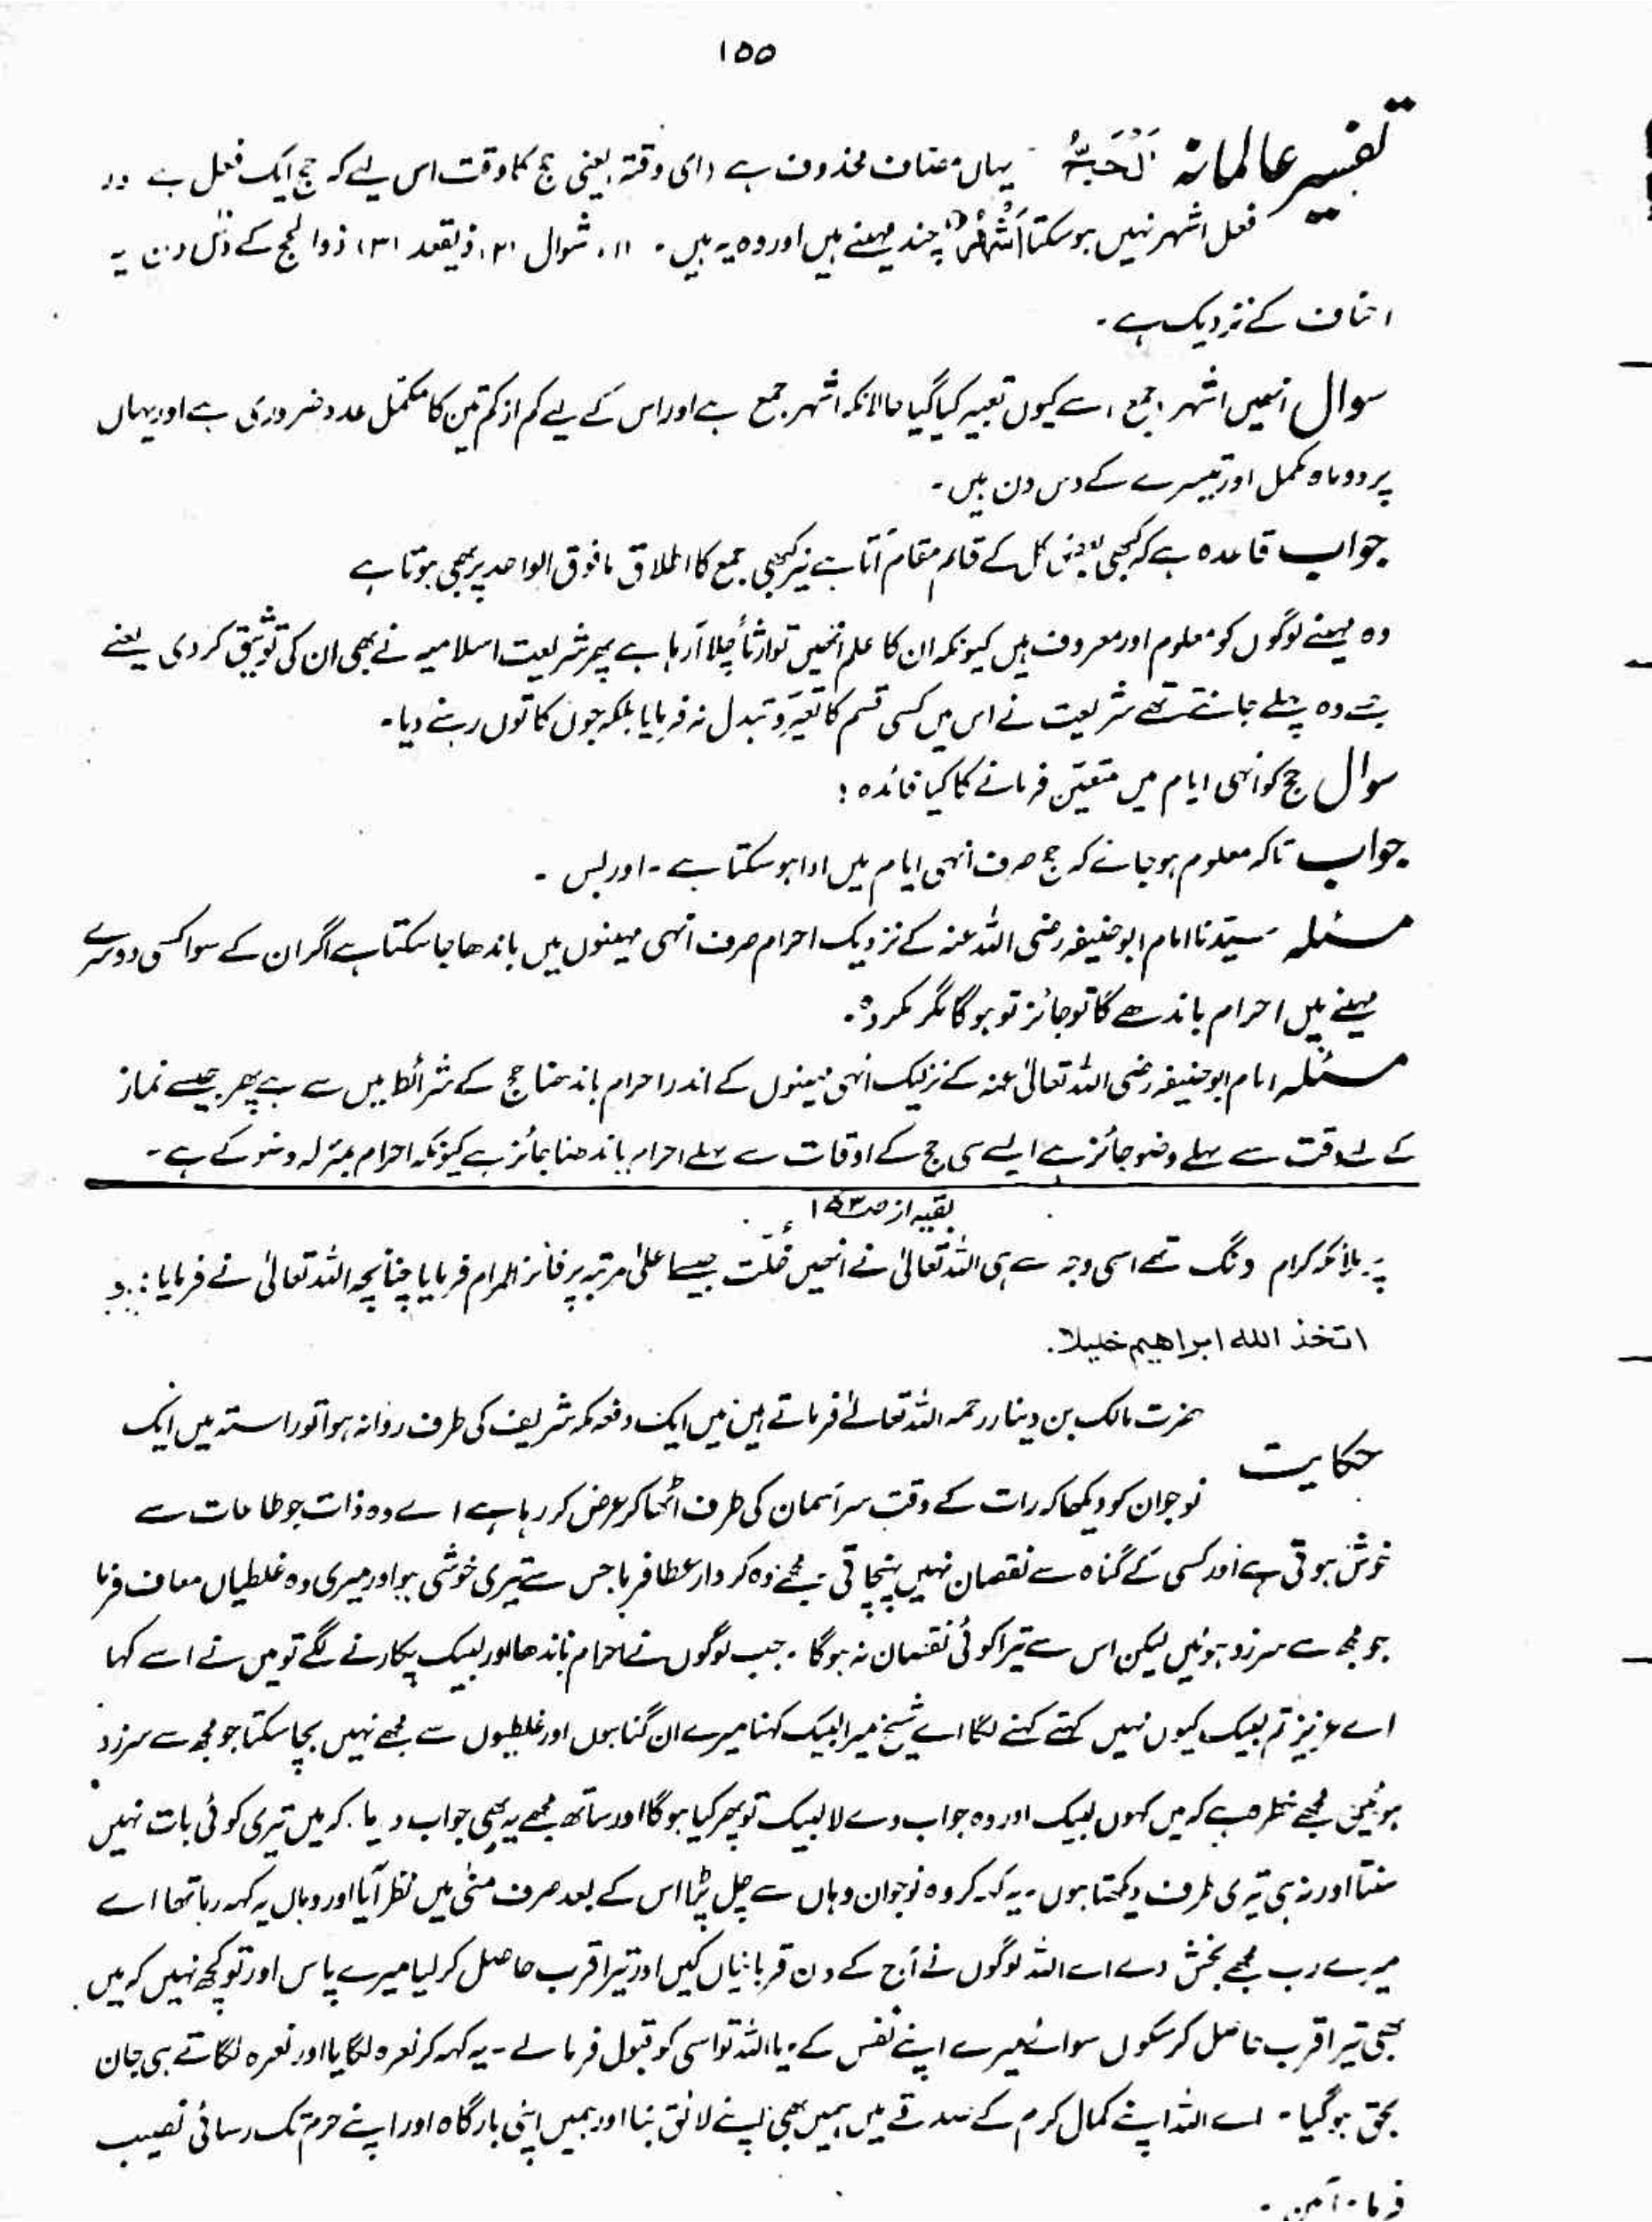 ۱۵۵
تفسیر عالمانہ اَلْحَجُّ یہاں مضاف محذوف ہے (ای وقتہ) یعنی حج کا وقت اس لیے کہ حج ایک فعل ہے اور
فعل اشہر نہیں ہو سکتا اَشْہُرٌ چند مہینے ہیں اور وہ یہ ہیں۔ (۱) شوال (۲) ذیقعد (۳) ذوالحج کے دس دن یہ
احناف کے نزدیک ہے۔
سوال انہیں اشہر (جمع) سے کیوں تعبیر کیا گیا حالانکہ اشہر جمع ہے اور اس کے لیے کم از کم تین کا مکمل عدد ضروری ہے اور یہاں
پر دو ماہ مکمل اور تیسرے کے دس دن ہیں۔
جواب قاعدہ ہے کہ کبھی بعض کل کے قائم مقام آتا ہے نیز کبھی جمع کا اطلاق مافوق الواحد پر بھی ہوتا ہے
وہ مہینے لوگوں کو معلوم اور معروف ہیں کیونکہ ان کا علم انھیں توارثاً چلا آ رہا ہے پھر شریعت اسلامیہ نے بھی ان کی توثیق کر دی یعنے
جسے وہ پہلے جانتے تھے شریعت نے اس میں کسی قسم کا تغیر و تبدل نہ فرمایا بلکہ جوں کا توں رہنے دیا۔
سوال حج کو انہی ایام میں متعین فرمانے کا کیا فائدہ ؛
جواب تاکہ معلوم ہو جائے کہ حج صرف انہی ایام میں ادا ہو سکتا ہے۔ اور بس ۔
مسئلہ سیّدنا امام ابو حنیفہ رضی اللہ عنہ کے نزدیک احرام صرف انہی مہینوں میں باندھا جا سکتا ہے اگر ان کے سوا کسی دوسرے
مہینے میں احرام باندھے گا تو جائز تو ہو گا مگر مکروہ۔
مسئلہ امام ابو حنیفہ رضی اللہ تعالیٰ عنہ کے نزدیک انہی مہینوں کے اندر احرام باندھنا حج کے شرائط میں سے ہے پھر جیسے نماز
کے لئے وقت سے پہلے وضو جائز ہے ایسے ہی حج کے اوقات سے پہلے احرام باندھنا جائز ہے کیونکہ احرام بمنزلہ وضو کے ہے۔
بقیہ از صـ ۱۵۳
پر ملائکہ کرام دنگ تھے اسی وجہ سے ہی اللہ تعالیٰ نے انھیں خُلّت جیسے اعلیٰ مرتبہ پر فائز المرام فرمایا چنانچہ اللہ تعالیٰ نے فرمایا: و
اتخذ اللہ ابراھیم خلیلا۔
حضرت مالک بن دینار رحمہ اللہ تعالیٰ فرماتے ہیں میں ایک دفعہ مکہ شریف کی طرف روانہ ہوا تو راستہ میں ایک
حکایت
نوجوان کو دیکھا کہ رات کے وقت سر آسمان کی طرف اٹھا کر عرض کر رہا ہے اے وہ ذات جو طاعات سے
خوش ہوتی ہے اور کسی کے گناہ سے نقصان نہیں پہنچاتی مجھے وہ کردار عطا فرما جس سے تیری خوشی ہو اور میری وہ غلطیاں معاف فرما
جو مجھ سے سرزد ہوئیں لیکن اس سے تیرا کوئی نقصان نہ ہو گا ۔ جب لوگوں نے احرام باندھا اور لبیک پکارنے لگے تو میں نے اسے کہا
اے عزیز تم لبیک کیوں نہیں کہتے کہنے لگا اے شیخ میرا لبیک کہنا میرے ان گناہوں اور غلطیوں سے مجھے نہیں بچا سکتا جو مجھ سے سرزد
ہوئیں مجھے خطرہ ہے کہ میں کہوں لبیک اور وہ جواب دے لا لبیک تو پھر کیا ہو گا اور ساتھ مجھے یہ بھی جواب دیا۔ کہ میں تیری کوئی بات نہیں
سنتا اور نہ ہی تیری طرف دیکھتا ہوں۔ یہ کہہ کر وہ نوجوان وہاں سے چل پڑا اس کے بعد صرف منیٰ میں نظر آیا اور وہاں یہ کہہ رہا تھا اے
میرے رب مجھے بخش دے اے اللہ لوگوں نے آج کے دن قربانیاں کیں اور تیرا قرب حاصل کر لیا میرے پاس اور تو کچھ نہیں کہ میں
بھی تیرا قرب حاصل کر سکوں سوائے میرے اپنے نفس کے۔ یا اللہ تو اسی کو قبول فرما لے۔ یہ کہہ کر نعرہ لگایا اور نعرہ لگاتے ہی جان
بحق ہو گیا۔ اے اللہ اپنے کمال کرم کے صدقے میں ہمیں بھی اپنے لائق بنا اور ہمیں اپنی بارگاہ اور اپنے حرم تک رسائی نصیب
فرما۔ آمین ۔